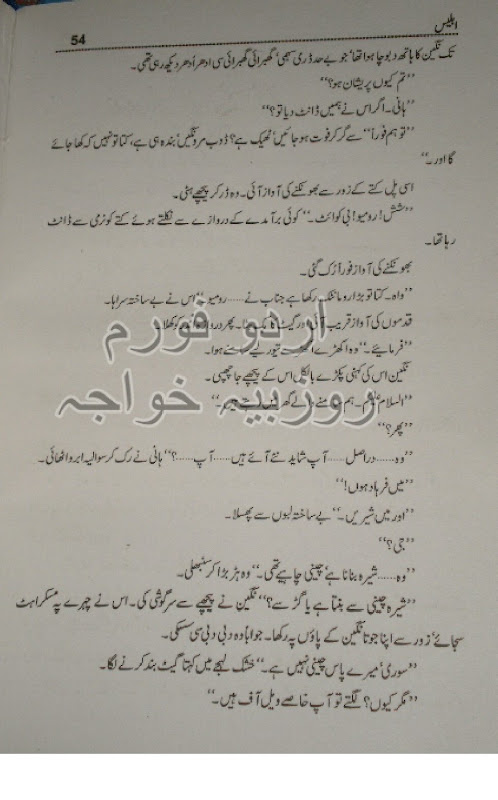 ابلیس
54
تک نگین کا ہاتھ دبوچا ہوا تھا‘ جو بے حد ڈری سہمی‘ گھبرائی گھبرائی سی ادھر اُدھر دیکھ رہی تھی۔
’’تم کیوں پریشان ہو؟‘‘
’’ہانی۔ اگر اس نے ہمیں ڈانٹ دیا تو؟‘‘
’’تو ہم فوراً‘‘ سے گر کر فوت ہو جائیں‘ ٹھیک ہے؟ ڈوب مرو نگین‘ بندہ ہی ہے، کتا تو نہیں کہ کھا جائے
گا اور۔‘‘
اسی پل کتے کے زور سے بھونکنے کی آواز آئی۔ وہ ڈر کر پیچھے ہٹی۔
’’شش! رومیو! بی کوائٹ۔‘‘ کوئی برآمدے کے دروازے سے نکلتے ہوئے کتے کو نرمی سے ڈانٹ
رہا تھا۔
بھونکنے کی آواز فوراً رُک گئی۔
’’واہ۔ کتا تو بڑا رومانٹک رکھا ہے جناب نے...... رومیو‘‘ اس نے بے ساختہ سراہا۔
قدموں کی آواز قریب آئی اور گیٹ کا پھر دروازہ اندر کو کھلا۔
’’فرمائیے۔‘‘ وہ اکھڑے اکھڑے تیور لیے سامنے ہوا۔
نگین اس کی کہنی پکڑے بالکل اس کے پیچھے جا چھپی۔
’’السلام علیکم۔ ہم سامنے والے گھر میں رہتے ہیں۔‘‘
’’پھر؟‘‘
’’وہ...... دراصل...... آپ شاید نئے آئے ہیں...... آپ......؟‘‘ ہانی نے رک کر سوالیہ ابرو اٹھائی۔
’’میں فرہاد ہوں!‘‘
’’اور میں شیریں۔‘‘ بے ساختہ لبوں سے پھسلا۔
’’جی؟‘‘
’’وہ...... شیرہ بنانا ہے‘ چینی چاہیے تھی۔‘‘ وہ ہڑبڑا کر سنبھلی۔
’’شیرہ چینی سے بنتا ہے یا گڑ سے؟‘‘ نگین نے پیچھے سے سرگوشی کی۔ اس نے چہرے پہ مسکراہٹ
سجائے‘ زور سے اپنا جوتا نگین کے پاؤں پہ رکھا۔ جواباً وہ دبی دبی سی سسکی۔
’’سوری‘ میرے پاس چینی نہیں ہے۔‘‘ خشک لہجے میں کہتا گیٹ بند کرنے لگا۔
’’مگر کیوں؟ لگتے تو آپ خاصے ویل آف ہیں۔‘‘
اردو فورم
روزبیہ خواجہ